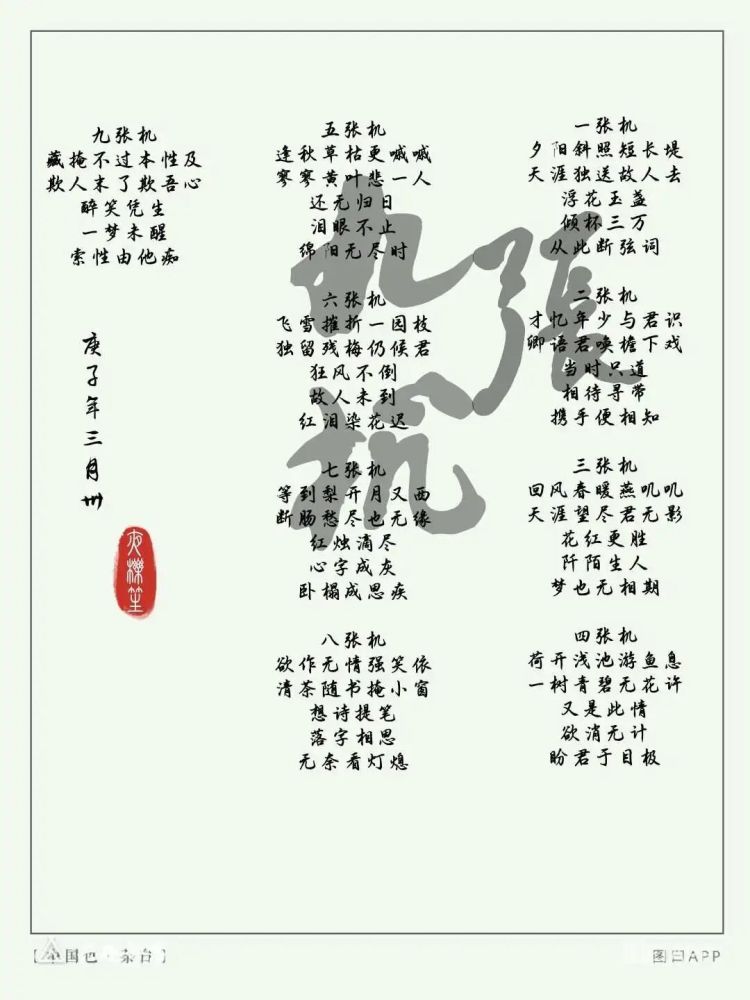 九張机
一张机
夕阳斜照短长堤
天涯独送故人去
浮花玉盏
倾杯三万
从此断弦词
二张机
才忆年少与君识
卿语君唤檐下戏
当时只道
相待寻带
携手便相知
三张机
回风春暖燕叽叽
天涯望尽君无影
花红更胜
阡陌生人
梦也无相期
四张机
荷开浅池游鱼息
一树青碧无花许
又是此情
欲消无计
盼君于目极
五张机
逢秋草枯更嘁嘁
寥寥黄叶悲一人
还无归日
泪眼不止
绵阳无尽时
六张机
飞雪摧折一园枝
独留残梅仍候君
狂风不倒
故人未到
红泪染花迟
七张机
等到梨开月又西
断肠愁尽也无缘
红烛滴尽
心字成灰
卧榻成思疾
八张机
欲作无情强笑依
清茶随书掩小窗
想诗提笔
落字相思
无奈看灯熄
九张机
藏掩不过本性及
欺人末了欺吾心
醉笑凭生
一梦未醒
索性由他痴
庚子年三月卅
图曰APP